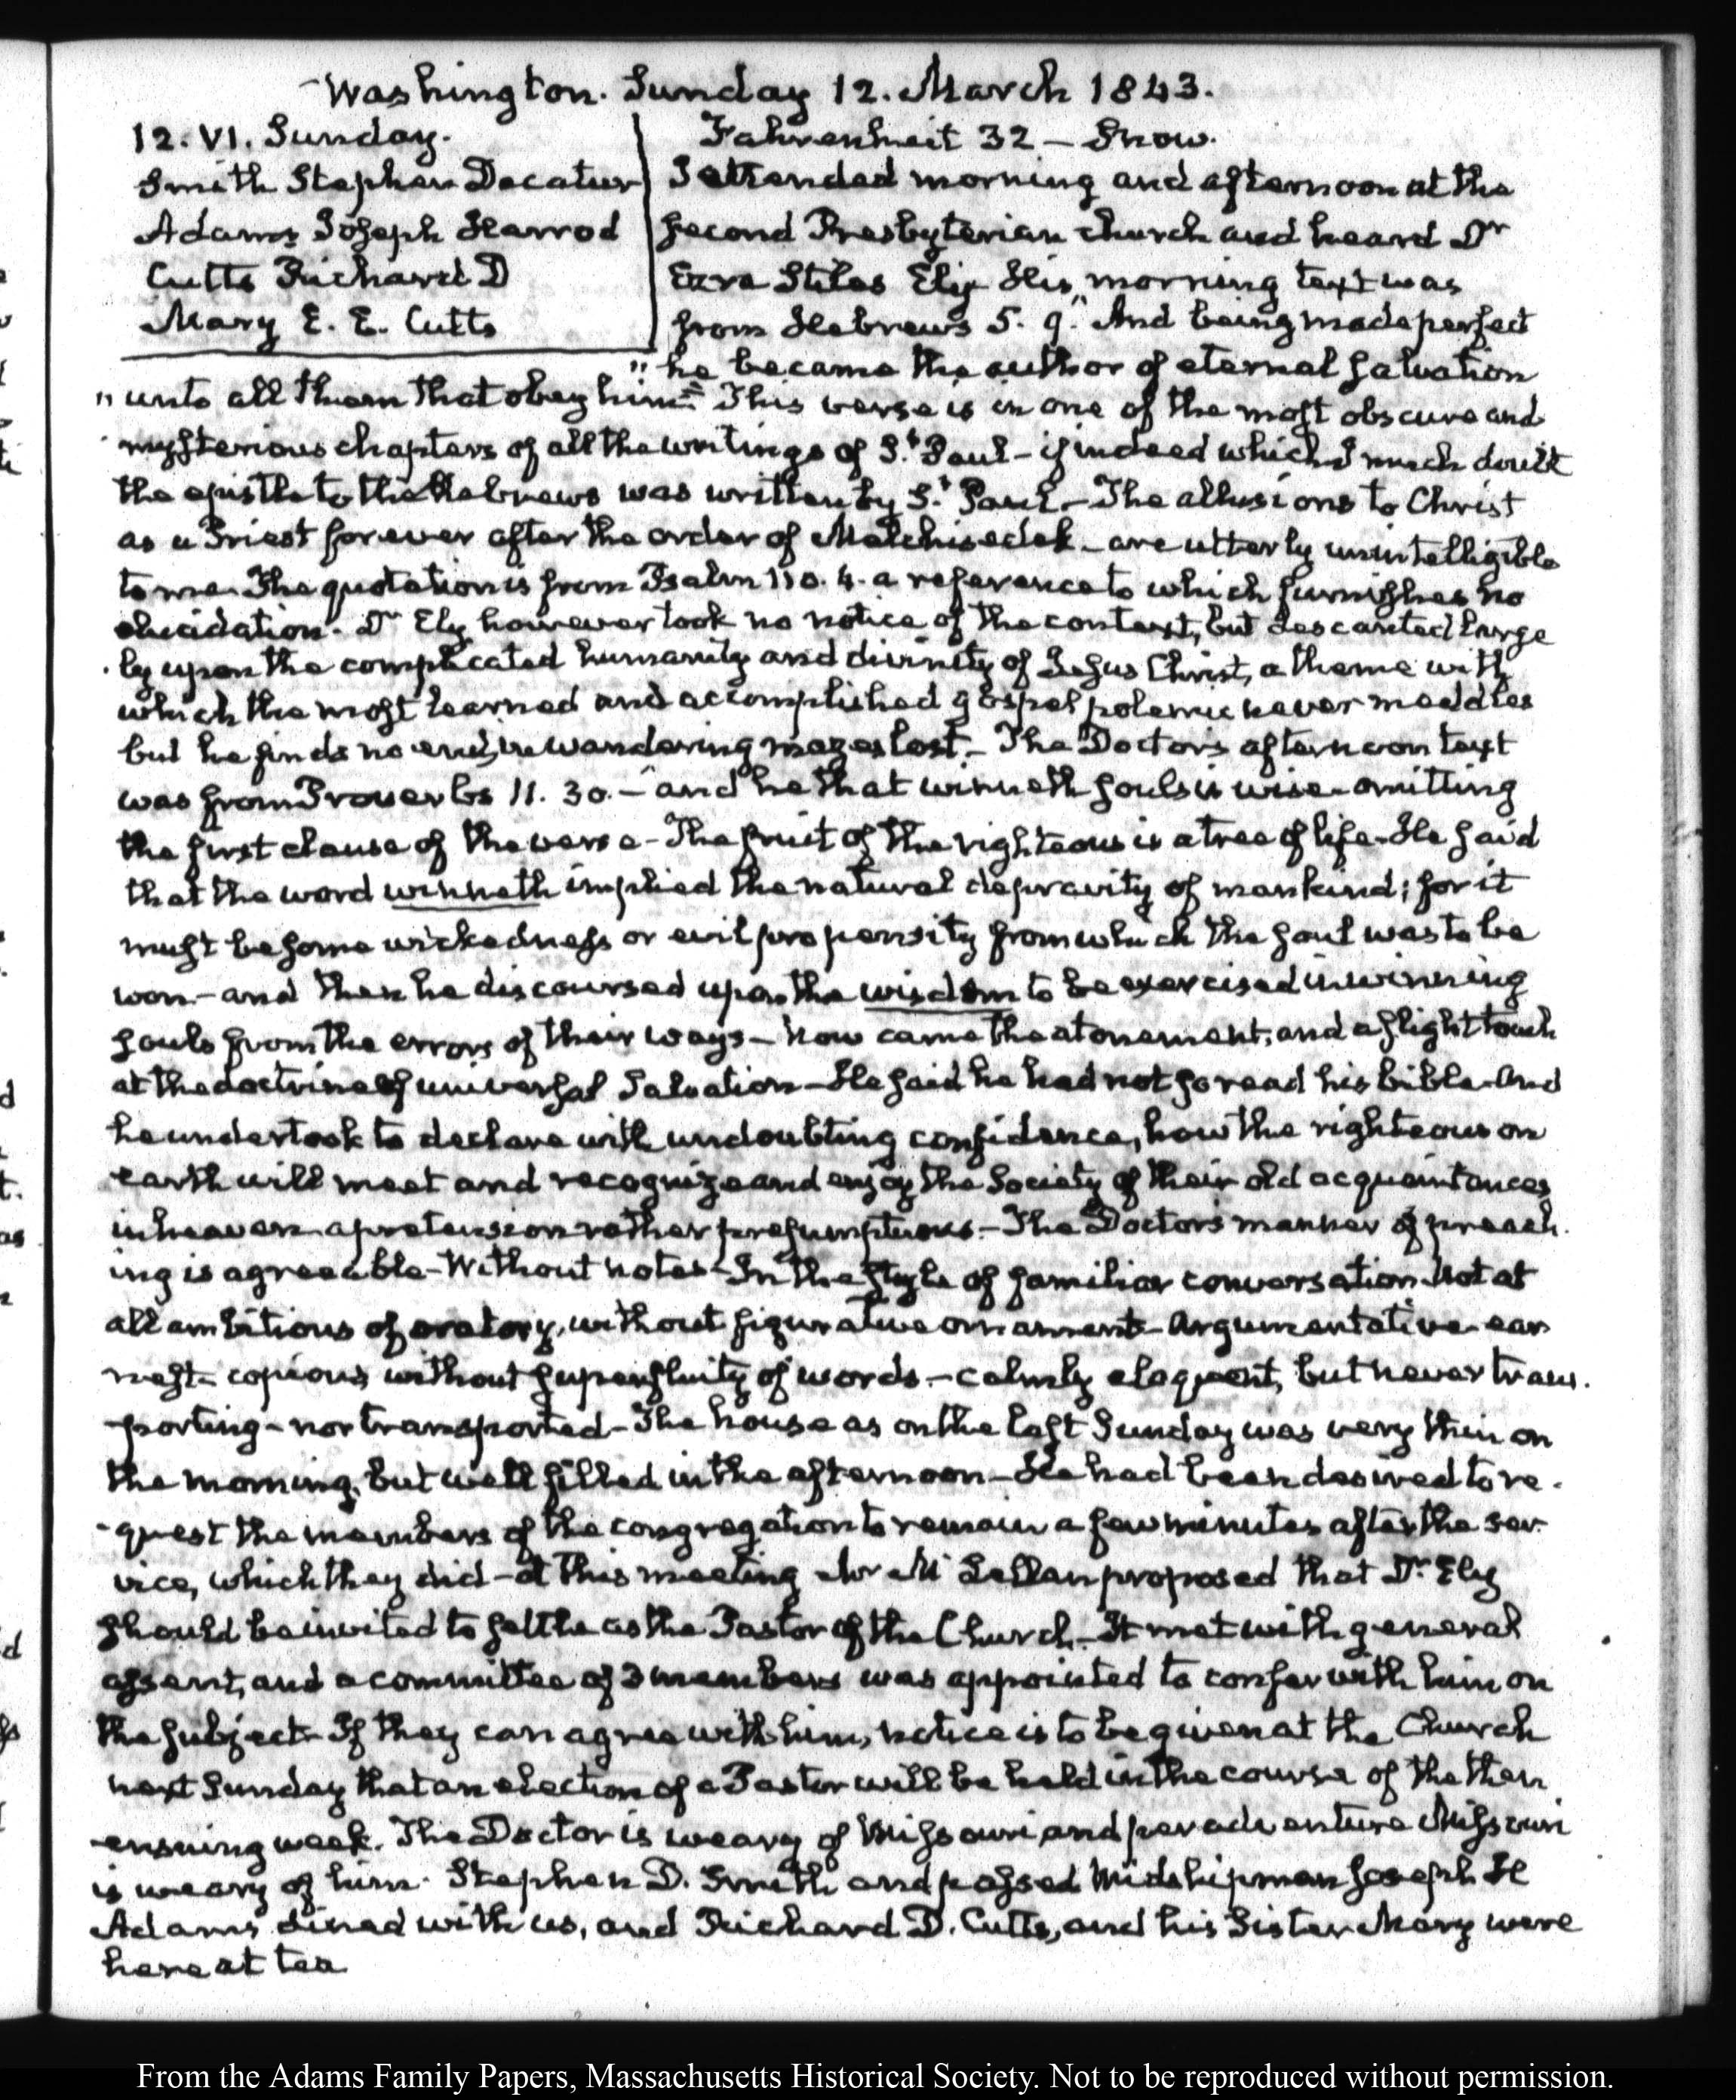 Washington. Sunday 12. March 1843.
12. VI. Sunday.
Smith Stephen Decatur
Adams Joseph Harrod
Cutts Richard D
Mary E. E. Cutts
Fahrenheit 32 – Snow.
I attended morning and afternoon at the
second Presbyterian church and heard Dr
Ezra Stiles Ely. His morning text was
from Hebrews 5. 9. "And being made perfect
" he became the author of eternal salvation
" unto all them that obey him:" This verse is in one of the most obscure and
mysterious chapters of all the writings of St. Paul – if indeed which I much doubt
the epistle to the Hebrews was written by St. Paul – The allusions to Christ
as a Priest forever after the order of Melchisedek – are utterly unintelligible
to me. The quotation is from Psalm 110. 4. a reference to which furnishes no
elucidation. Dr Ely however took no notice of the context, but descanted large
ly upon the complicated humanity and divinity of Jesus Christ, a theme with
which the most learned and accomplished gospel polemic never meddles
but he finds no end, in wandering mazes lost. – The Doctor's afternoon text
was from Proverbs 11. 30. – and he that winneth souls is wise – omitting
the first clause of the verse – The fruit of the righteous is a tree of life – He said
that the word winneth implied the natural depravity of mankind; for it
must be some wickedness or evil propensity from which the soul was to be
won – and then he discoursed upon the wisdom to be exercised in winning
souls from the errors of their ways – Now came the atonement, and a slight touch
at the doctrine of universal Salvation – He said he had not so read his bible – And
he undertook to declare with undoubting confidence, how the righteous on
earth will meet and recognize and enjoy the Society of their old acquaintances
in heaven – a pretension rather presumptuous. – The Doctor's manner of preach-
ing is agreeable – Without notes – In the style of familiar conversation. Not at
all ambitious of oratory, without figurative ornament – Argumentative – ear
nest – copious without superfluity of words – calmly eloquent, but never trans-
porting – nor transported – The house as on the last Sunday was very thin on
the morning, but well filled in the afternoon – He had been desired to re-
-quest the members of the congregation to remain a few minutes after the ser-
vice, which they did – at this meeting Mr McLellan proposed that Dr. Ely
should be invited to settle as the Pastor of the Church – It met with general
assent, and a committee of 3 members was appointed to confer with him on
the subject – If they can agree with him, notice is to be given at the Church
next Sunday that an election of a Pastor will be held in the course of the then
ensuing week. The Doctor is weary of Missouri and peradventure Missouri
is weary of him. Stephen D. Smith and passed Midshipman Joseph H
Adams dined with us, and Richard D. Cutts, and his Sister Mary were
here at tea
From the Adams Family Papers, Massachusetts Historical Society. Not to be reproduced without permission.